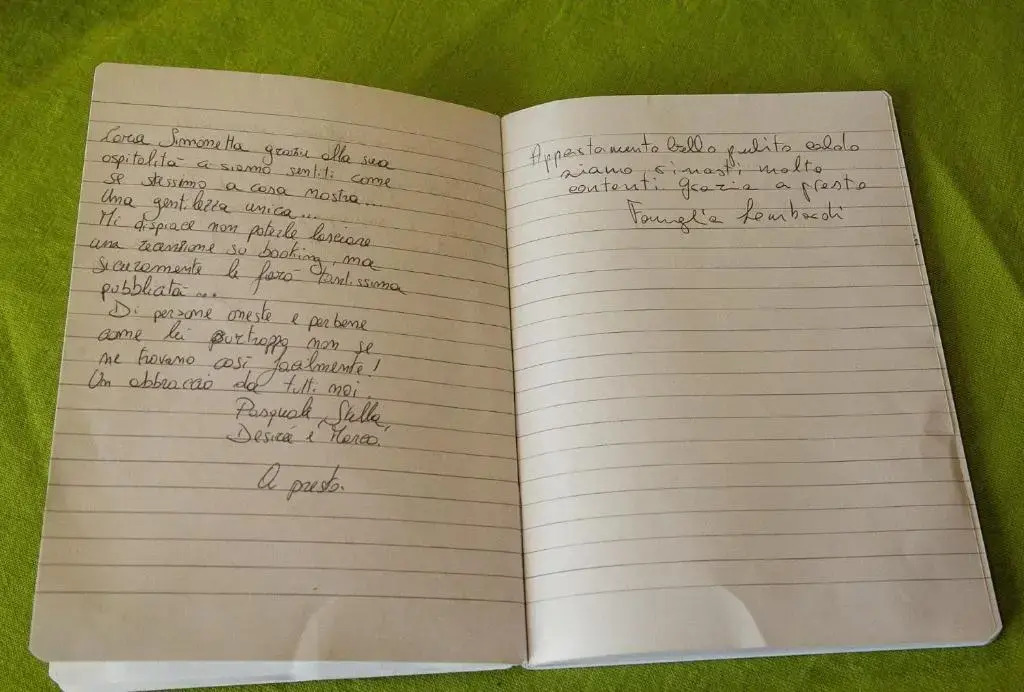 Cara Simonetta grazie alla sua
ospitalità ci siamo sentiti come
se stessimo a casa nostra...
Una gentilezza unica...
Mi dispiace non poterle lasciare
una recensione su booking, ma
sicuramente le farò tantissima
pubblicità...
Di persone oneste e perbene
come lei purtroppo non se
ne trovano così facilmente!
Un abbraccio da tutti noi.
Pasquale, Stella,
Desirè e Marco.
A presto.
Appartamento bello pulito caldo
siamo rimasti molto
contenti. Grazie a presto
Famiglia Lombardi